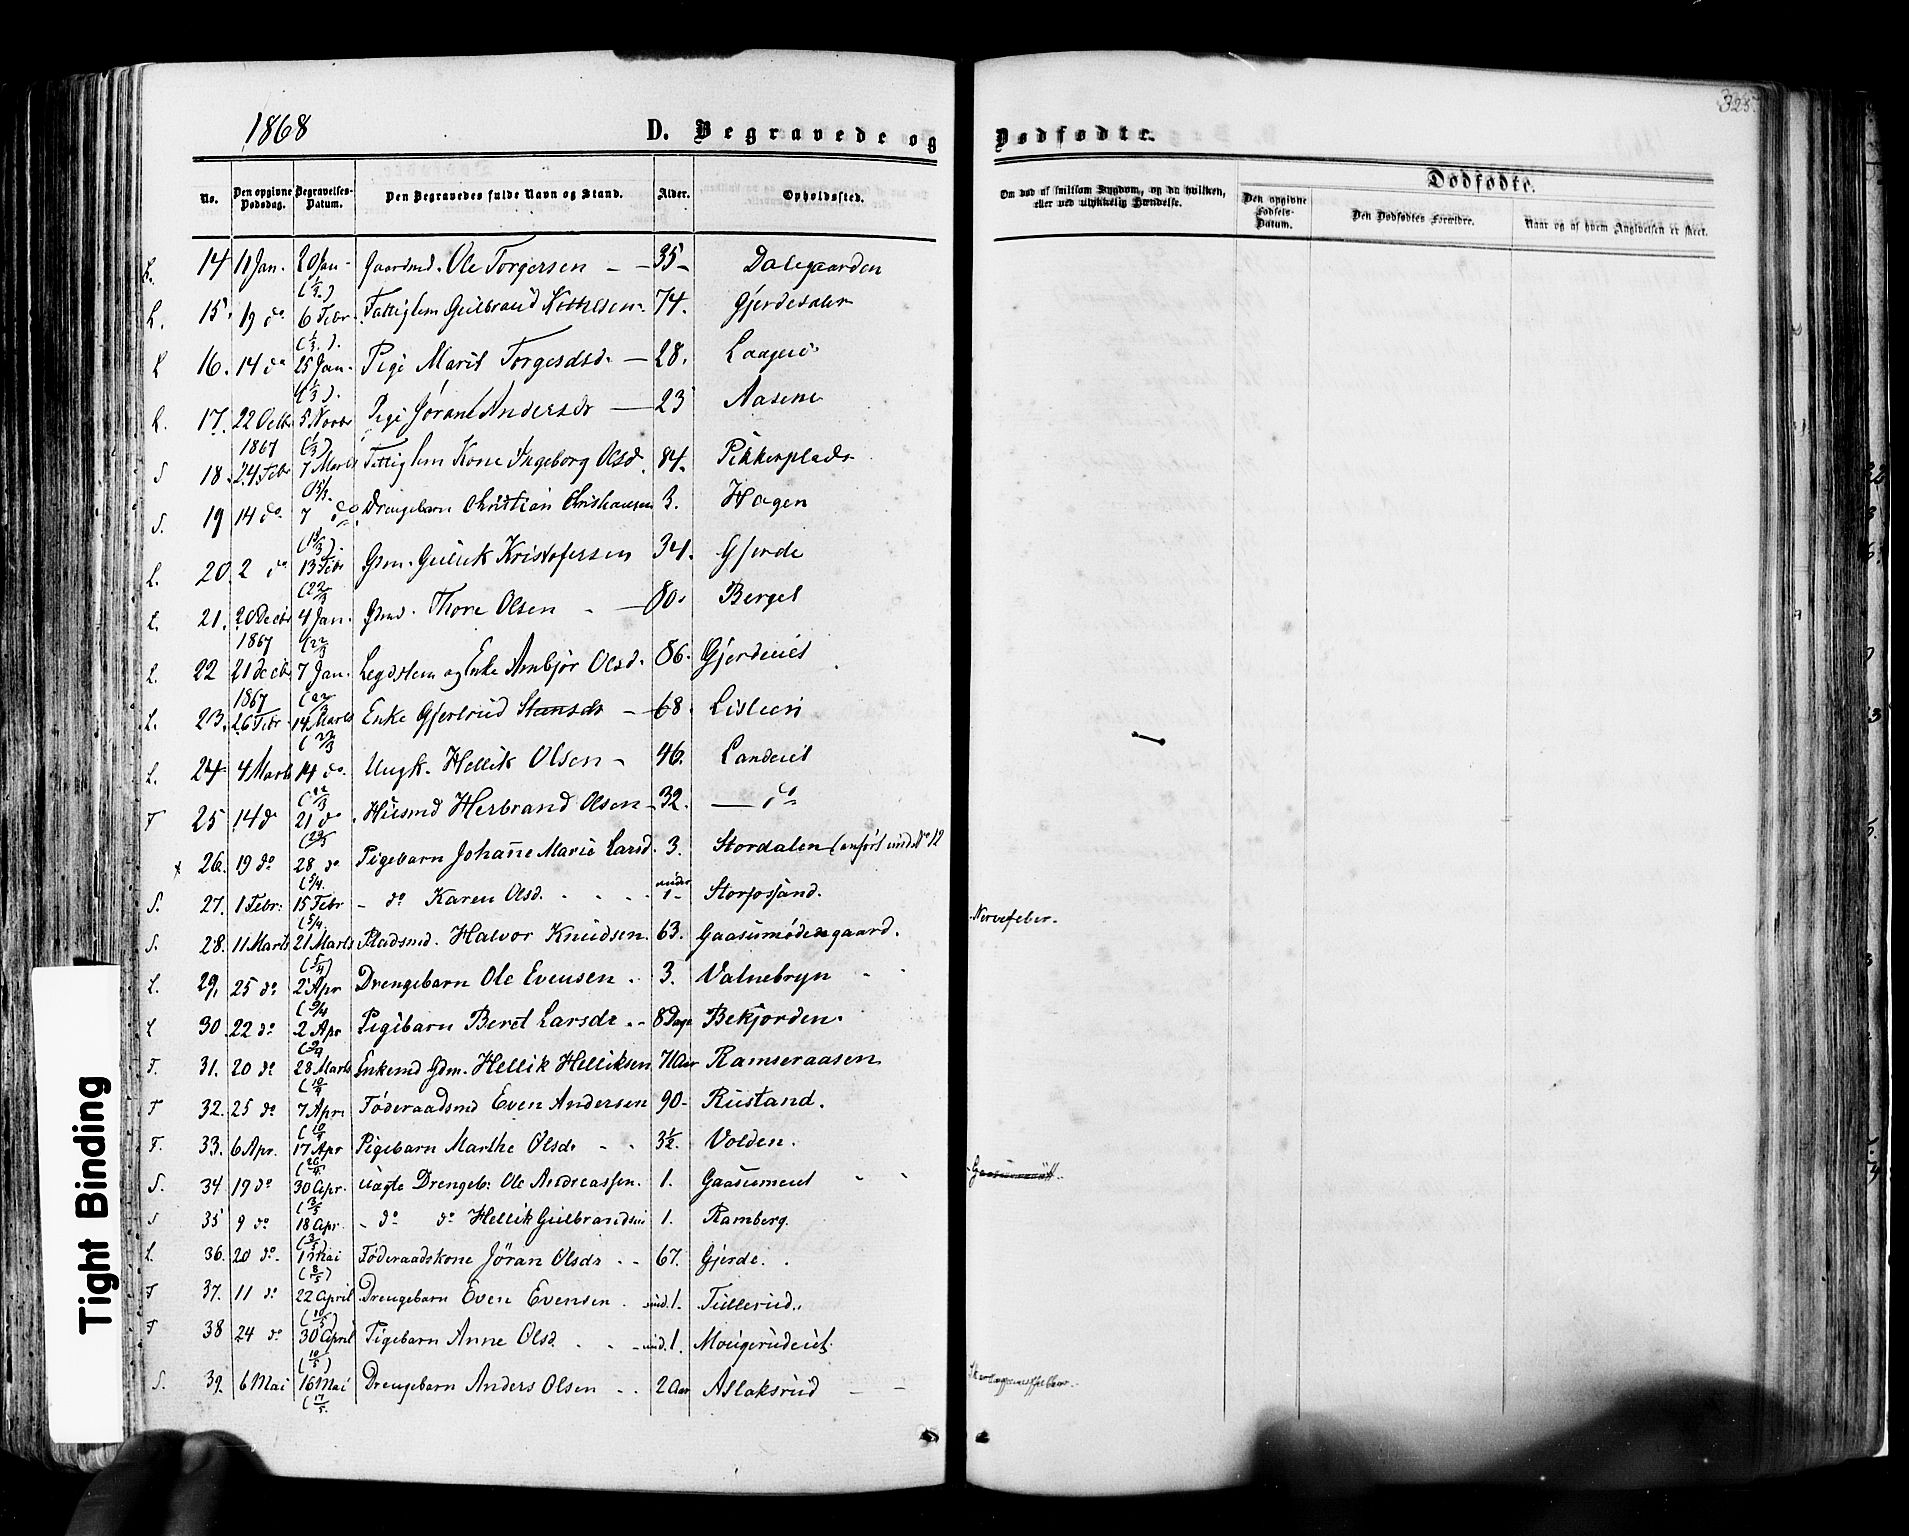 1868 D. Begravede og Dødfødte. 325.
No. Den opgivne Dødsdag. Begravelses-Datum. Den Begravedes fulde Navn og Stand. Alder. Opholdssted. Om død af smitsom Sygdom, og da hvilken, eller ved ulykkelig Hændelse. Dødfødte.
Den opgivne Fødsels-Datum. Den Dødfødtes Forældre. Naar og af hvem Angivelsen er skeet.
L. 14 11 Jan. 20 Jan - Gaardmd. Ole Torgersen - - 35 - Dalegaarden
(1/3.)
L. 15. 19 do 6 Febr. Fattiglem Gulbrand 74. Gjerdesater
(1/3.).
L 16. 14 do 25 Jan. Pige Marit Torgesdsd. — 28.
(1/3).
L. 17. 22 Octbr 5 Novbr Pige Jøran Andersdr — 23 Aasene
1867 (1/3)
S 18. 24 Febr 7 Marts Fattiglem Kone Ingeborg Olsd. 84. Pikkerplads
S. 19 14 do 7 do. Drengebarn Christian Christiansen 3. Hagen
L. 20. 2 do 13 Febr Gdm. Gullik Kristofersen 34. Gjerde
(22/3
L. 21. 20 Decbr 4 Jan. Gdmd. Thore Olsen - — 80. Berget
1867 (22/3
L. 22 21 Decbr 7 Jan. Legdslem og Enke Anbjør Olsd. 86. Gjerdeiet
1867 (22/3
L. 23. 26 Febr. 14 Marts Enke Gjertrud — 68.
(22/3
L. 24 4 Marts 14 do. Ungk. Hellik Olsen - 46. Landeiet
(22/3
F 25 14 do 21 do. Husmd Herbrand Olsen - 32. — do
26. 19 do 28 do Pigebarn Johanne Marie Larsd. 3. Stordalen (anført und. No 12
(5/4.
S. 27. 1 Febr. 15 Febr - do Karen Olsd. . . . under 1 -
(5/4.
S. 28. 11 Marts 21 Marts Pladsmd. Halvor Knudsen. 63. gaard. Nervefeber.
(5/4)
L. 29. 25 do 2 Apr Drengebarn Ole Evensen . 3. Valnebryn - .
L 30. 22 do 2 Apr Pigebarn Beret Larsdr. - 8 Dage Bekjorden.
F. 31. 20 do 28 Marts Enkemd Gdm. Hellik Helliksen 71 Aar Ramseraasen
(10/4
F 32. 25 do 7 Apr. Føderaadsmd Even Andersen 90 - Rustand.
(10/4
F. 33. 6 Apr. 17 Apr Pigebarn Marthe Olsdr - - 3½. Volden.
(26/4.
S. 34 19 do 30 Apr. uægte Drengeb: Ole Andreassen. 1. - -
(3/5
S 35 9 do 18 Apr. - do do Hellik Gulbrandsen 1. Ramberg.
(3/5)
L. 36. 20 do - 1 Mai Føderaadskone Jöran Olsdr . - 67. Gjerde. .
(8/5)
F 37. 11 do 22 April Drengebarn Even Evensen . und. 1. Tullerud.
(10/5)
F 38 24 do 30 April Pigebarn Anne Olsd . . - und. 1. Mougerudeiet.
(10/5)
S. 39. 6 Mai 16 Mai Drengebarn Anders Olsen . . 2 Aar Aslaksrud - -
(17/5.
Tight Binding